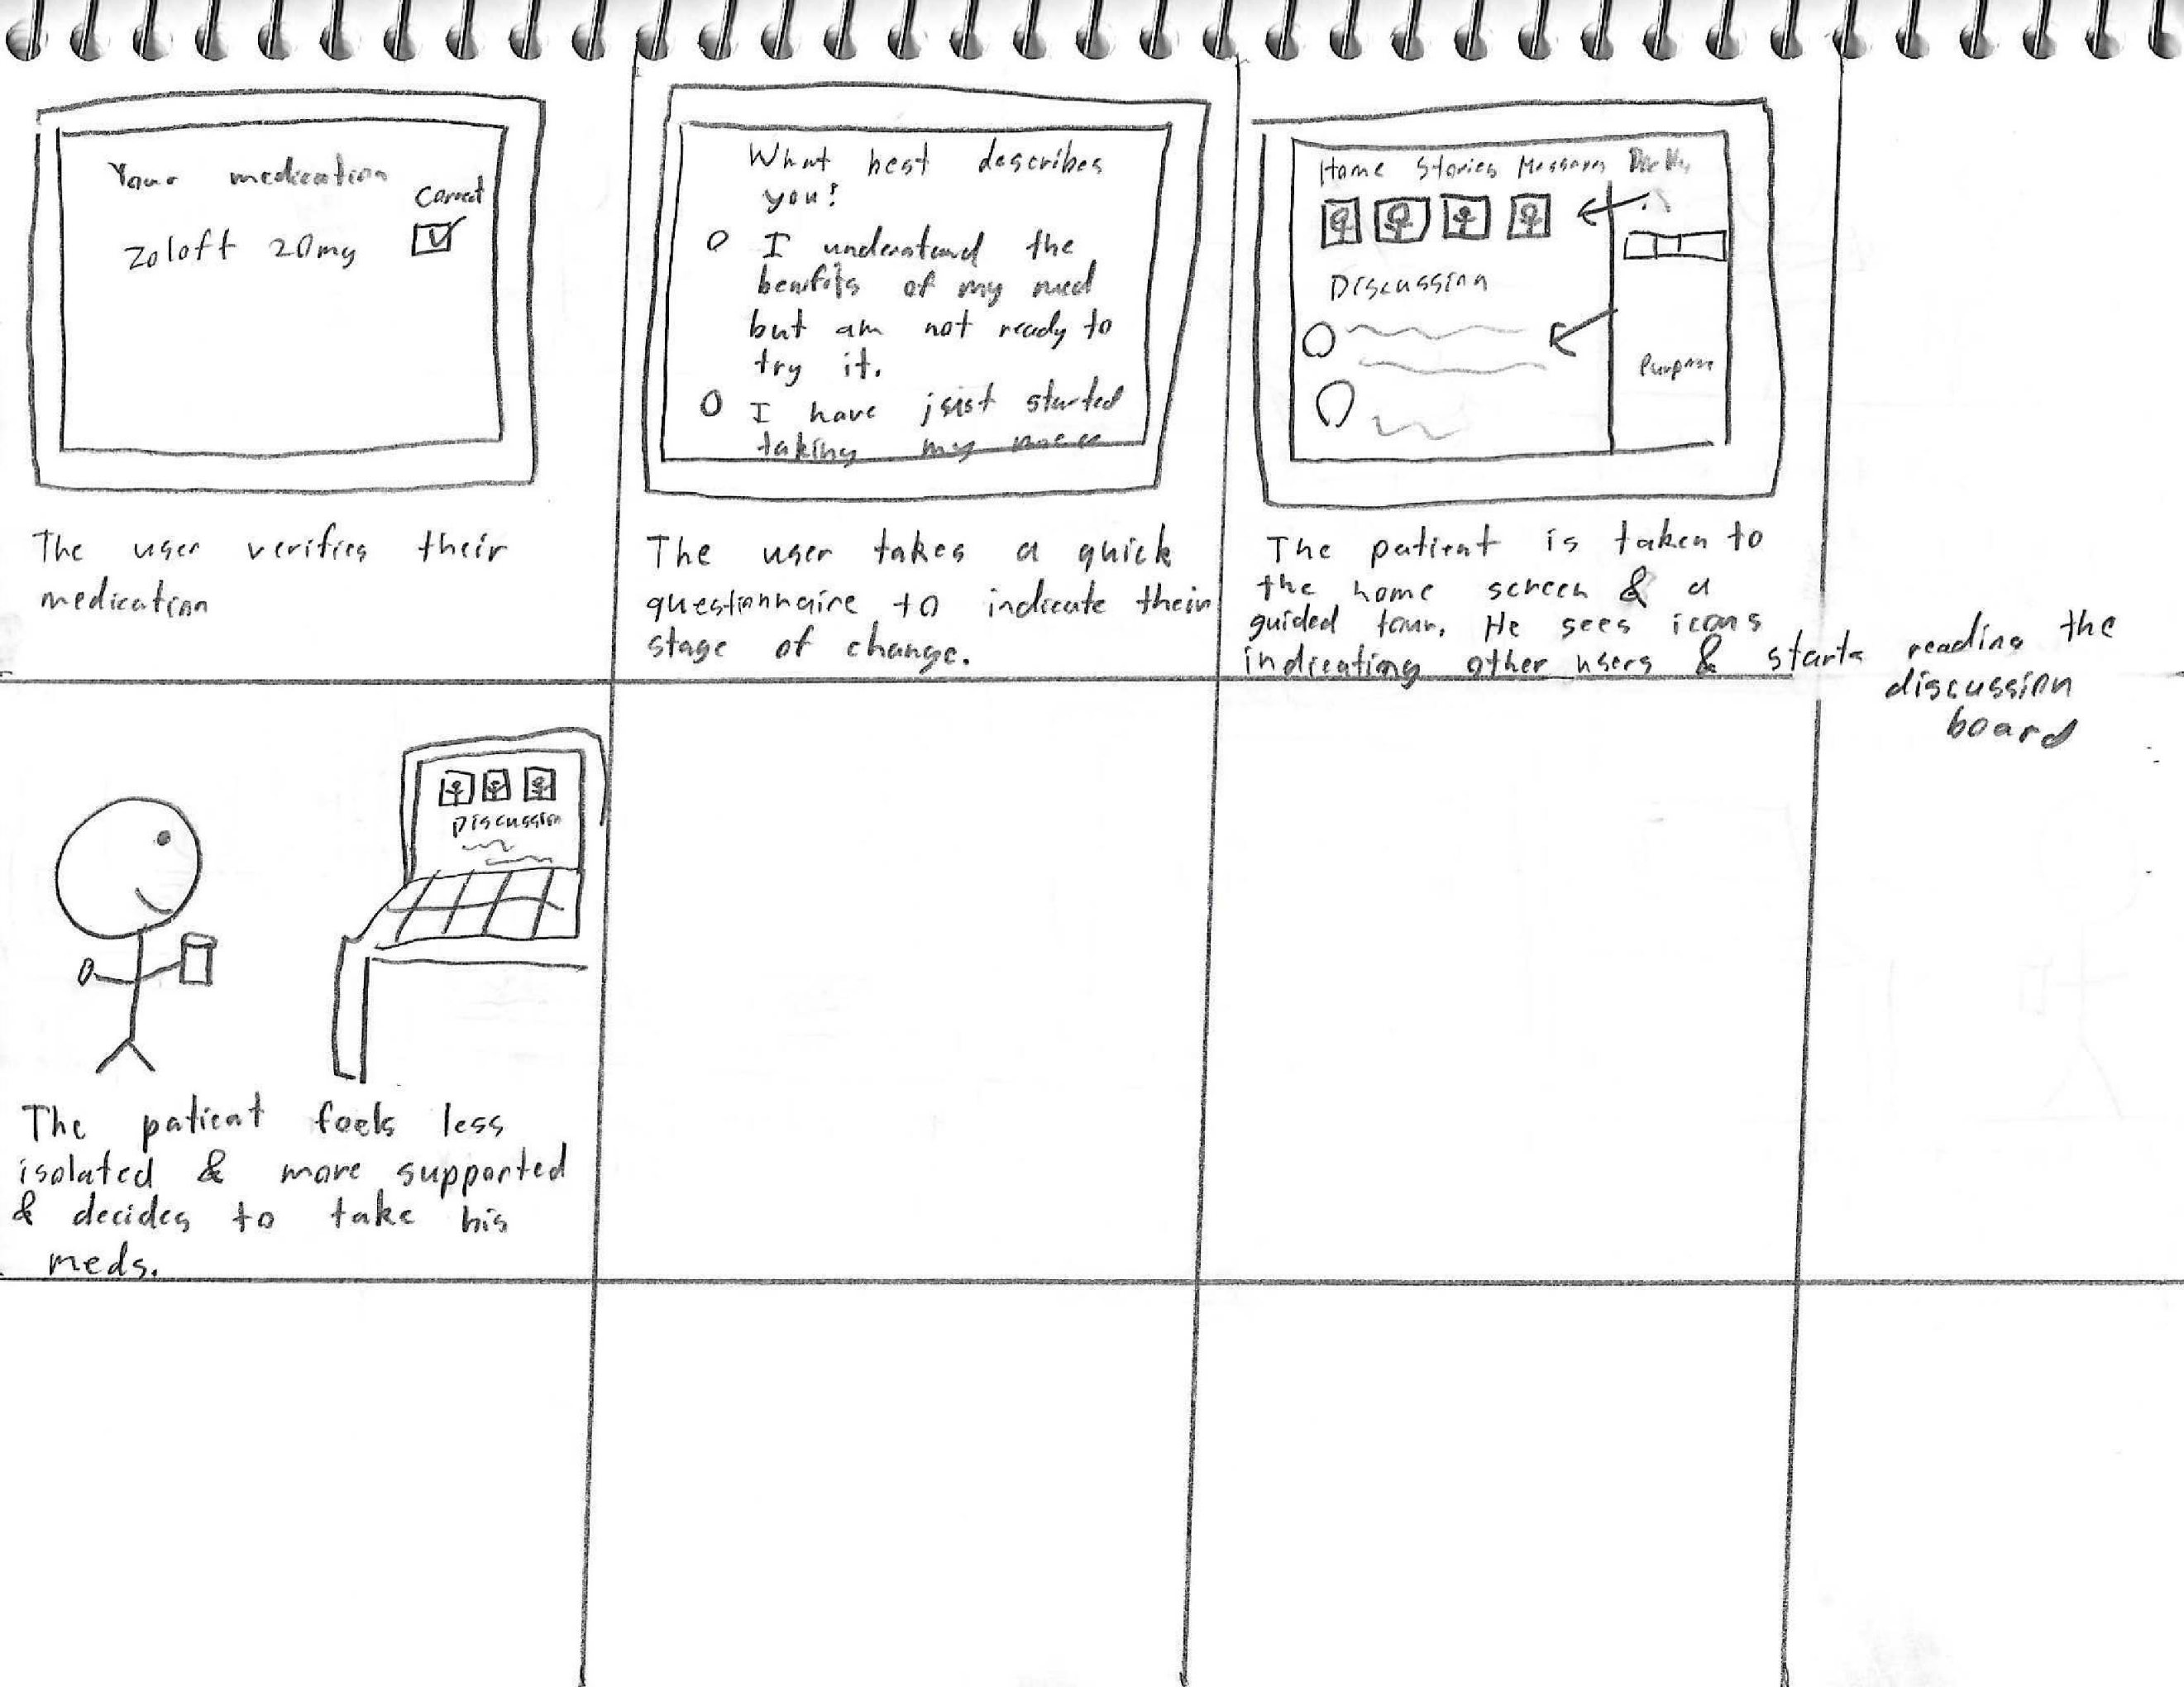 Your medication
Correct
Zoloft 20mg
The user verifies their
medication
What best describes
you?
I understand the
benifits of my med
but am not ready to
try it.
I have jsist started
taking my
The user takes a quick
questionnaire to indicate their
stage of change.
Home Stories Messages
Discussion
Purpose
The patient is taken to
the home screen & a
guided tour. He sees icons
indicating other users & starts reading the
discussion
board
Discussion
The patient feels less
isolated & more supported
& decides to take his
meds.